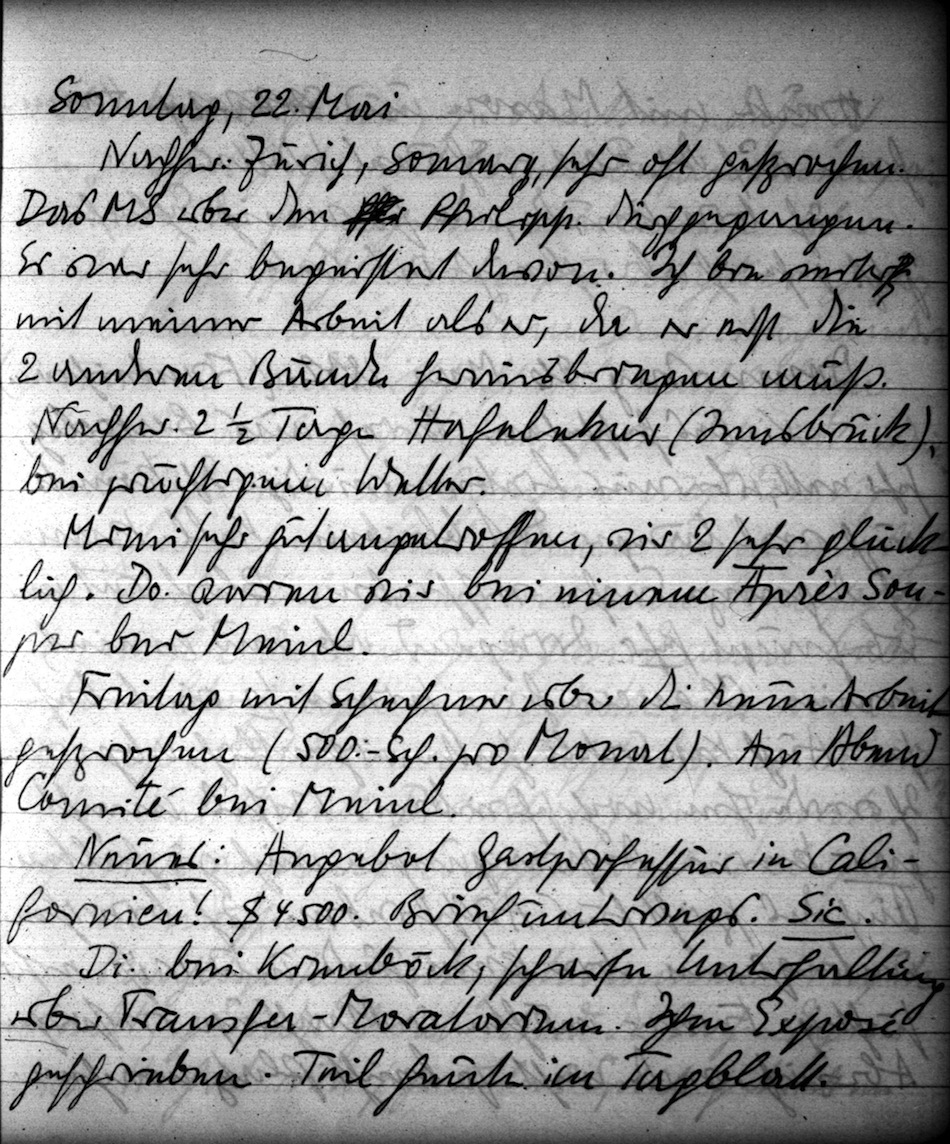 Sonntag, 22. Mai
Nachher: Zürich, Somary, sehr oft gesprochen.
Das MS über den Philipp. durchgegangen.
Er war sehr begeistert davon. Ich bin weiter
mit meiner Arbeit als er, da er erst die
2 anderen Bände herausbringen muß.
Nachher. 2 ½ Tage Hafelekar (Innsbruck),
bei prächtigem Wetter.
Mimi sehr gut angetroffen, wir 2 sehr glück-
lich. Do. waren wir bei einem Après Sou-
per bei Meinl.
Freitag mit Schechner über die neue Arbeit
gesprochen (500.- Sch. pro Monat). Am Abend
Comité bei Meinl.
Neues: Angebot Gastprofessur in Cali-
fornien! $ 4500. Brief unterwegs. Sic.
Di. bei Kienböck, scharfe Unterhaltung
über Transfer-Moratorium. Ihm Exposé
geschrieben. Teil heute im Tagblatt.